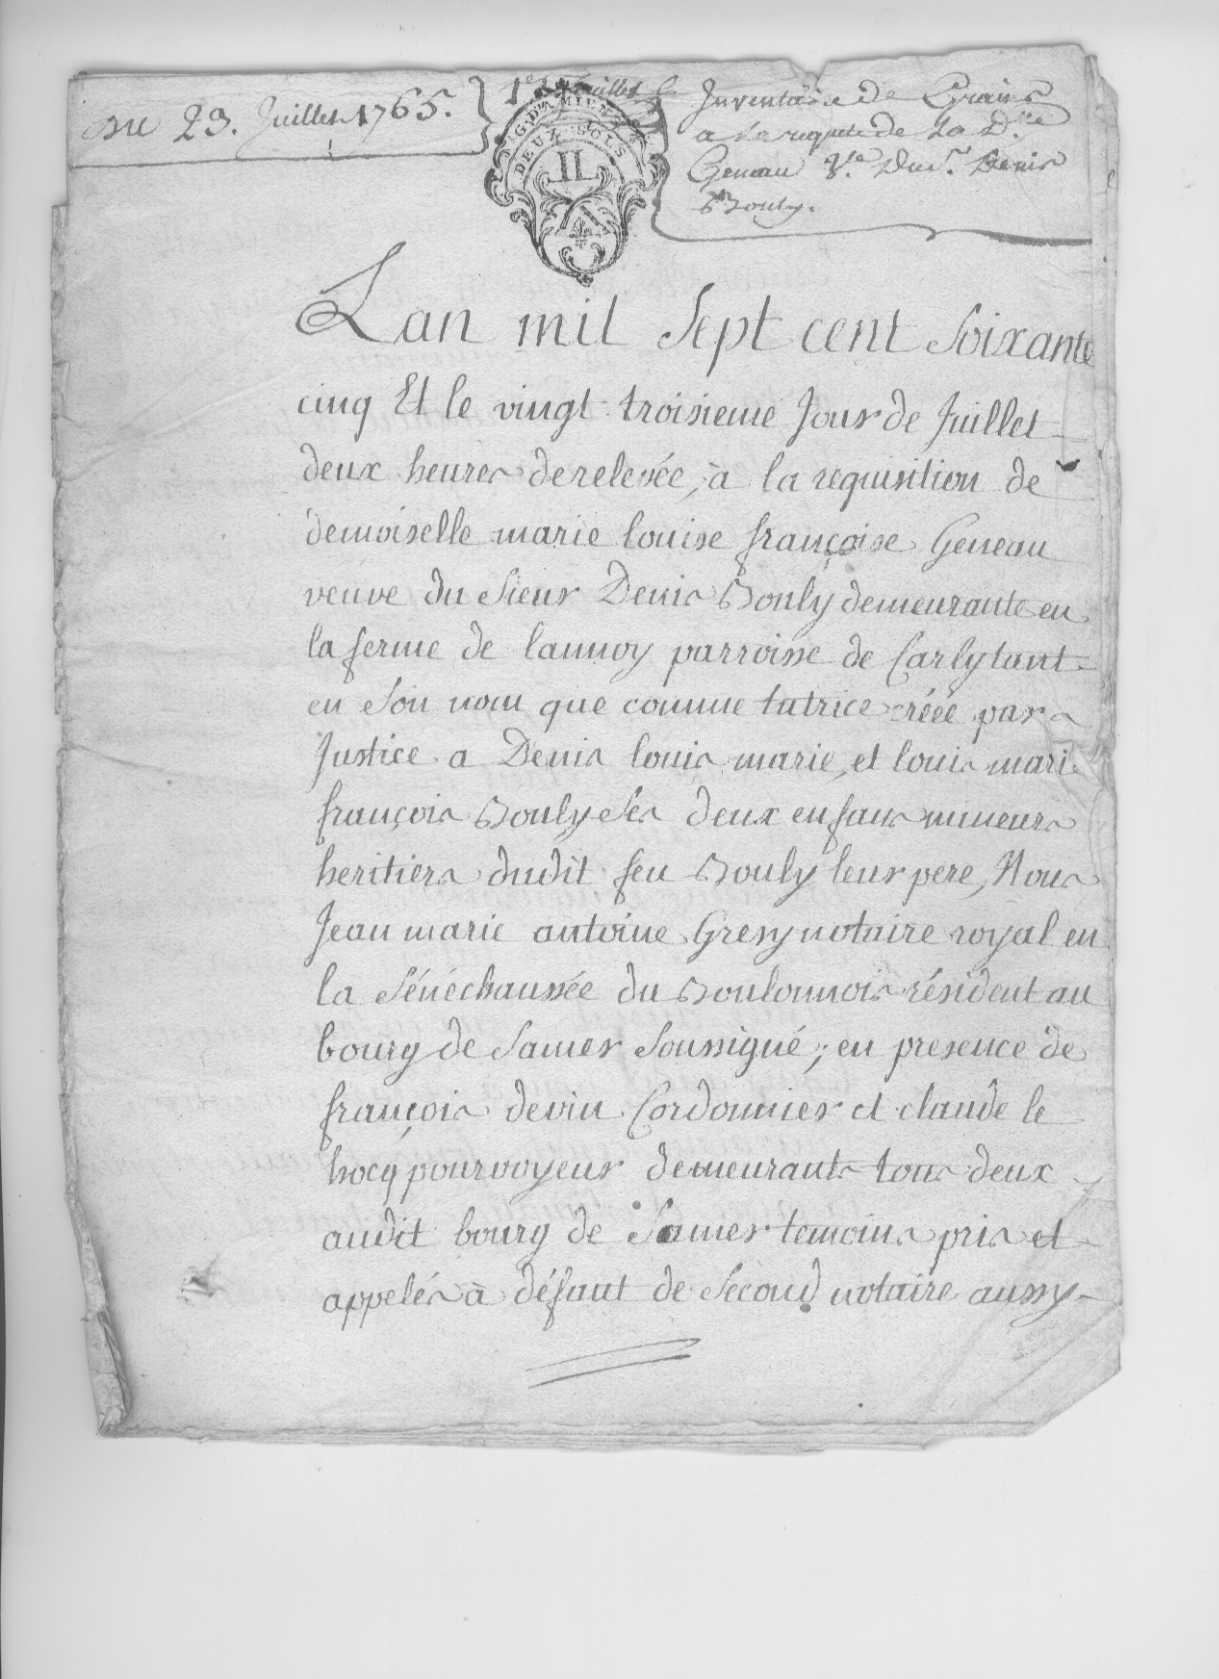 Du 23. Juillet 1765.
1er feuillet
G. D'AMIENS
DEUX SOLS
II
Inventaire de Grains
a la requete de La Dlle
Geneau Ve. Du Sr. Denis
Bouly.
Lan mil Sept cent Soixante
cinq Et le vingt troisieme Jour de Juillet
deux heures de relevée, à la requisition de
demoiselle marie louise françoise Geneau
veuve du Sieur Denis Bouly demeurante en
la ferme de launoy parroisse de Carly tant
en Son nom que comme tutrice créée par
Justice a Denis louis marie, et louis marie
françois Bouly Ses deux enfans mineurs
heritiers dudit feu Bouly leur pere, Nous
Jean marie antoine Gresy notaire royal en
la Sénéchaussée du Boulonnois résident au
bourg de Samer Soussigné; en presence de
françois devin Cordonnier et claude le
hocq pourvoyeur demeurants tous deux
audit bourg de Samer temoins pris et
appelés à défaut de Second notaire aussy